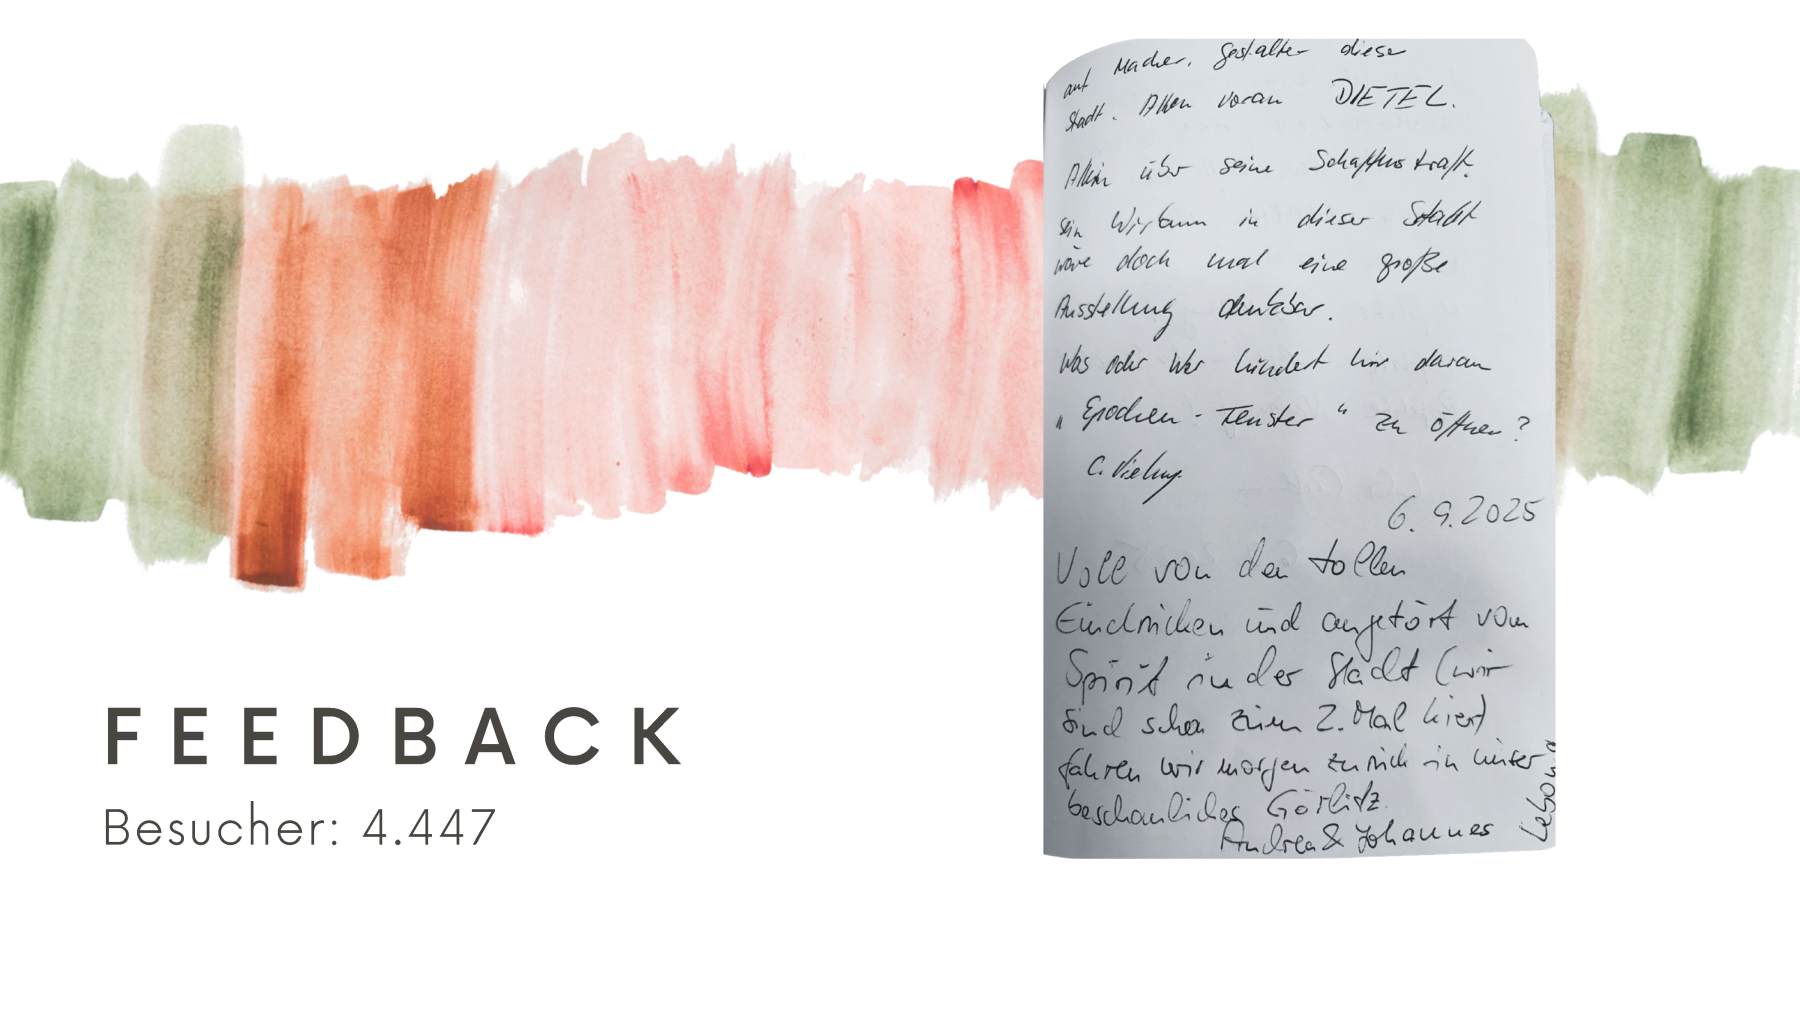 FEEDBACK
Besucher: 4.447
auf Macher, Gestalter dieser
Stadt. Allen voran DIETEL.
Allein über seine Schaffenskraft,
sein in dieser Stadt
wäre doch mal eine große
Ausstellung denkbar.
Was oder Wer hindert hier daran
"Epochen-Fenster" zu öffnen?
C.
6.9.2025
Voll von den tollen
Eindrücken und angetört vom
Spirit in der Stadt (wir
sind schon zum 2. Mal hier)
fahren wir morgen zurück in unser
beschauliches Görlitz.
Andrea & Johannes